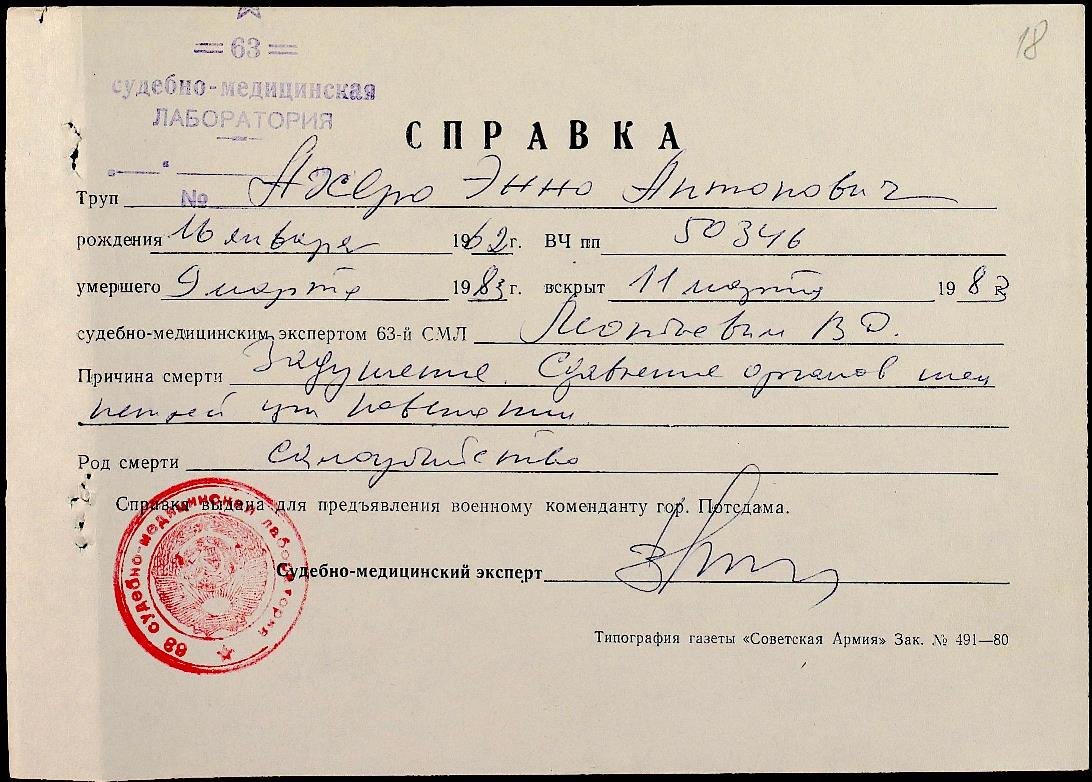 18
= 63 =
судебно-медицинская
ЛАБОРАТОРИЯ
СПРАВКА
"
№
Труп Энно Антонович
рождения 16 января 1962 г. ВЧ пп 50346
умершего 9 марта 1983 г. вскрыт 11 марта 1983
судебно-медицинским экспертом 63-й СМЛ Леонтьевым В О.
Причина смерти Задушение. Сдавление органов шеи
петлей при повешении
Род смерти самоубийство
Справка выдана для предъявления военному коменданту гор. Потсдама.
Судебно-медицинский эксперт
63 судебно-медицинская лаборатория
Типография газеты «Советская Армия» Зак. № 491—80